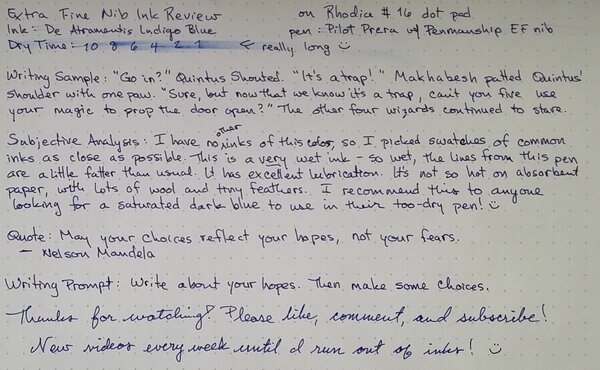 Extra Fine Nib Ink Review on Rhodia #16 dot pad
Ink: De Atramentis Indigo Blue pen: Pilot Prera w/ Penmanship EF nib
Dry Time: 10 8 6 4 2 1 ← really long ☺
Writing Sample: "Go in?" Quintus Shouted. "It's a trap!" Makhabesh patted Quintus'
shoulder with one paw. "Sure, but now that we know it's a trap, can't you five use
your magic to prop the door open?" The other four wizards continued to stare.
Subjective Analysis: I have no other inks of this color, so I picked swatches of common
inks as close as possible. This is a very wet ink - so wet, the lines from this pen
are a little fatter than usual. It has excellent lubrication. It's not so hot on absorbent
paper, with lots of wool and tiny feathers. I recommend this to anyone
looking for a saturated dark blue to use in their too-dry pen! ☺
Quote: May your choices reflect your hopes, not your fears.
- Nelson Mandela
Writing Prompt: Write about your hopes. Then make some choices.
Thanks for watching! Please like, comment, and subscribe!
New videos every week until I run out of inks! ☺